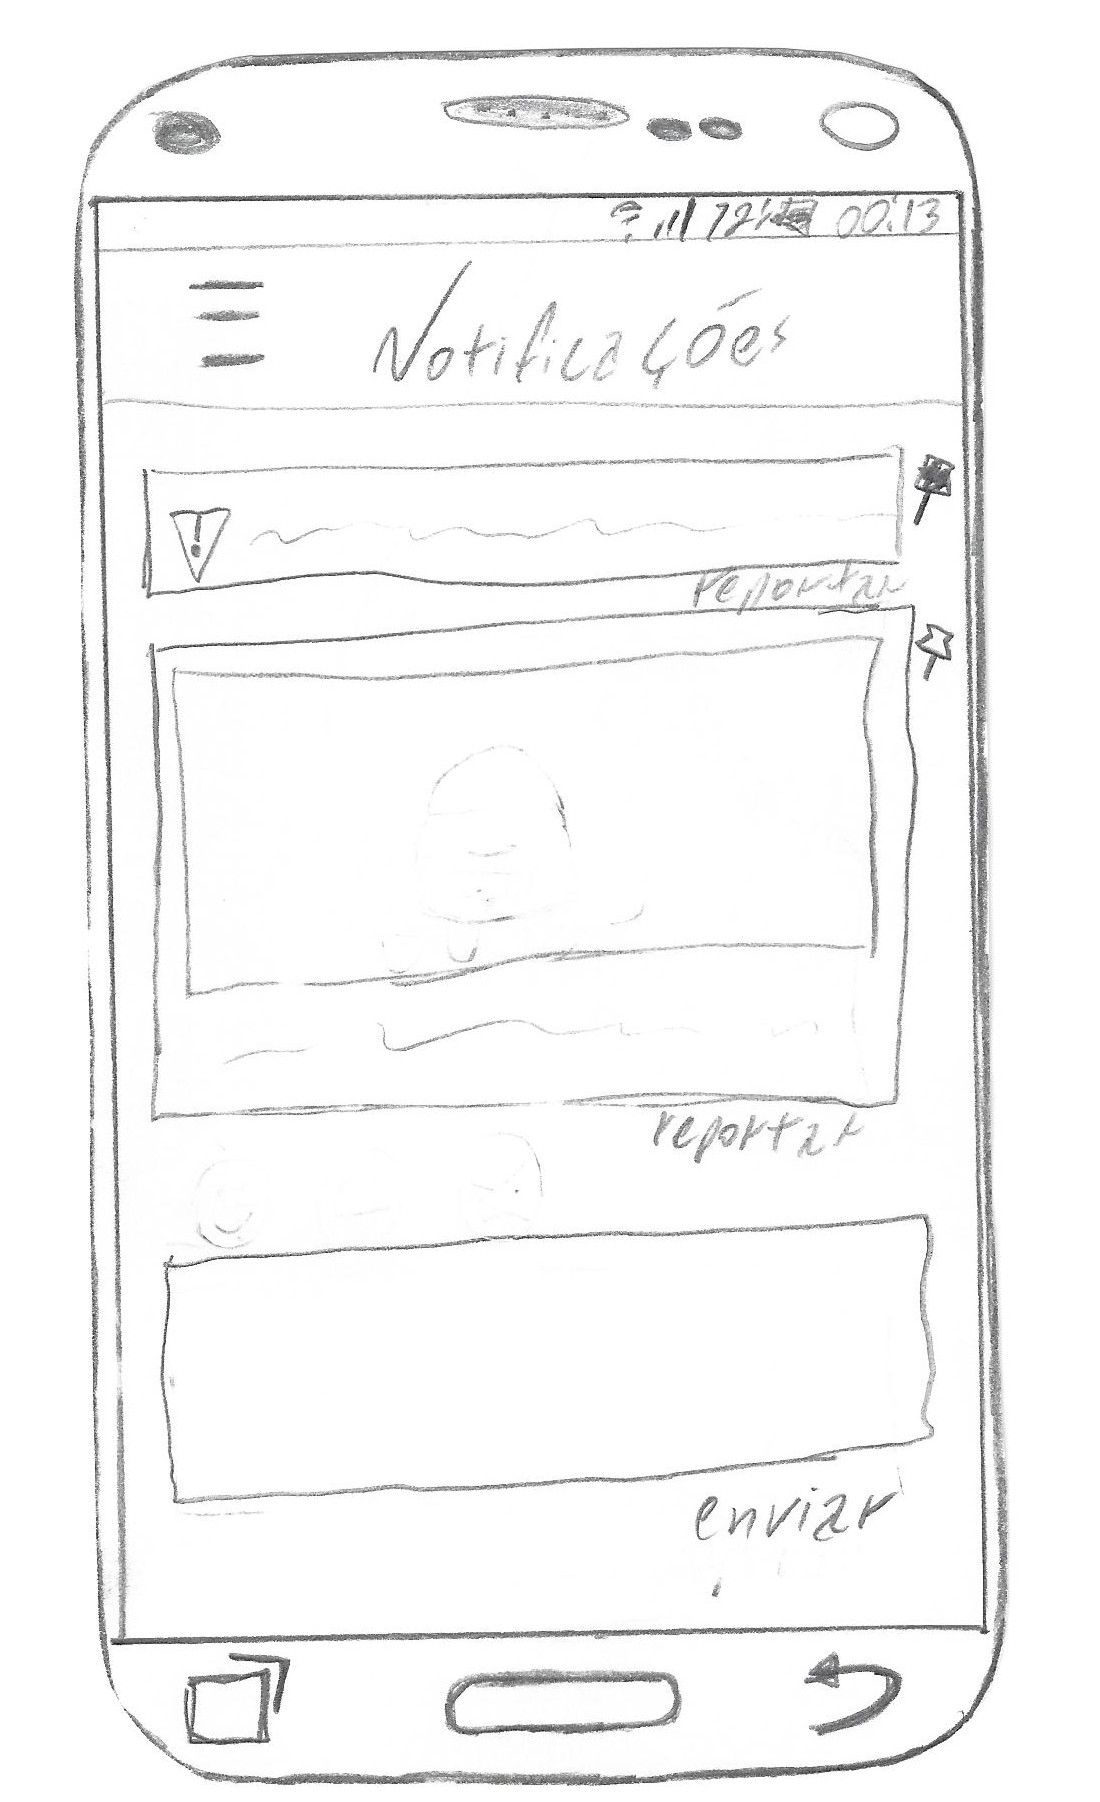 72% 00:13
Notificações
!
reportar
reportar
enviar